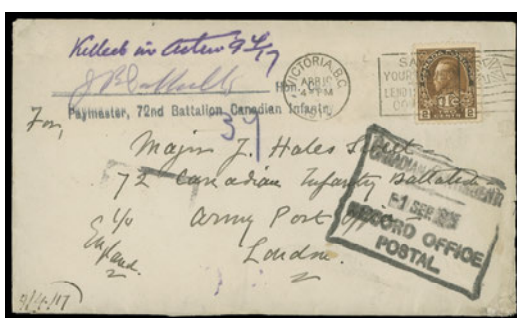 Killed in Action 9/4/17
Hon. Capt.
Paymaster, 72nd Battalion Canadian Infantry
34
VICTORIA, B.C.
APR 10
4 - PM
YOUR
For,
Major J. Hales Sweet
72 Canadian Infantry Battalion
c/o Army Post Office
London.
England.
CANADIAN
-1 SEP
RECORD OFFICE
POSTAL
9/4/17